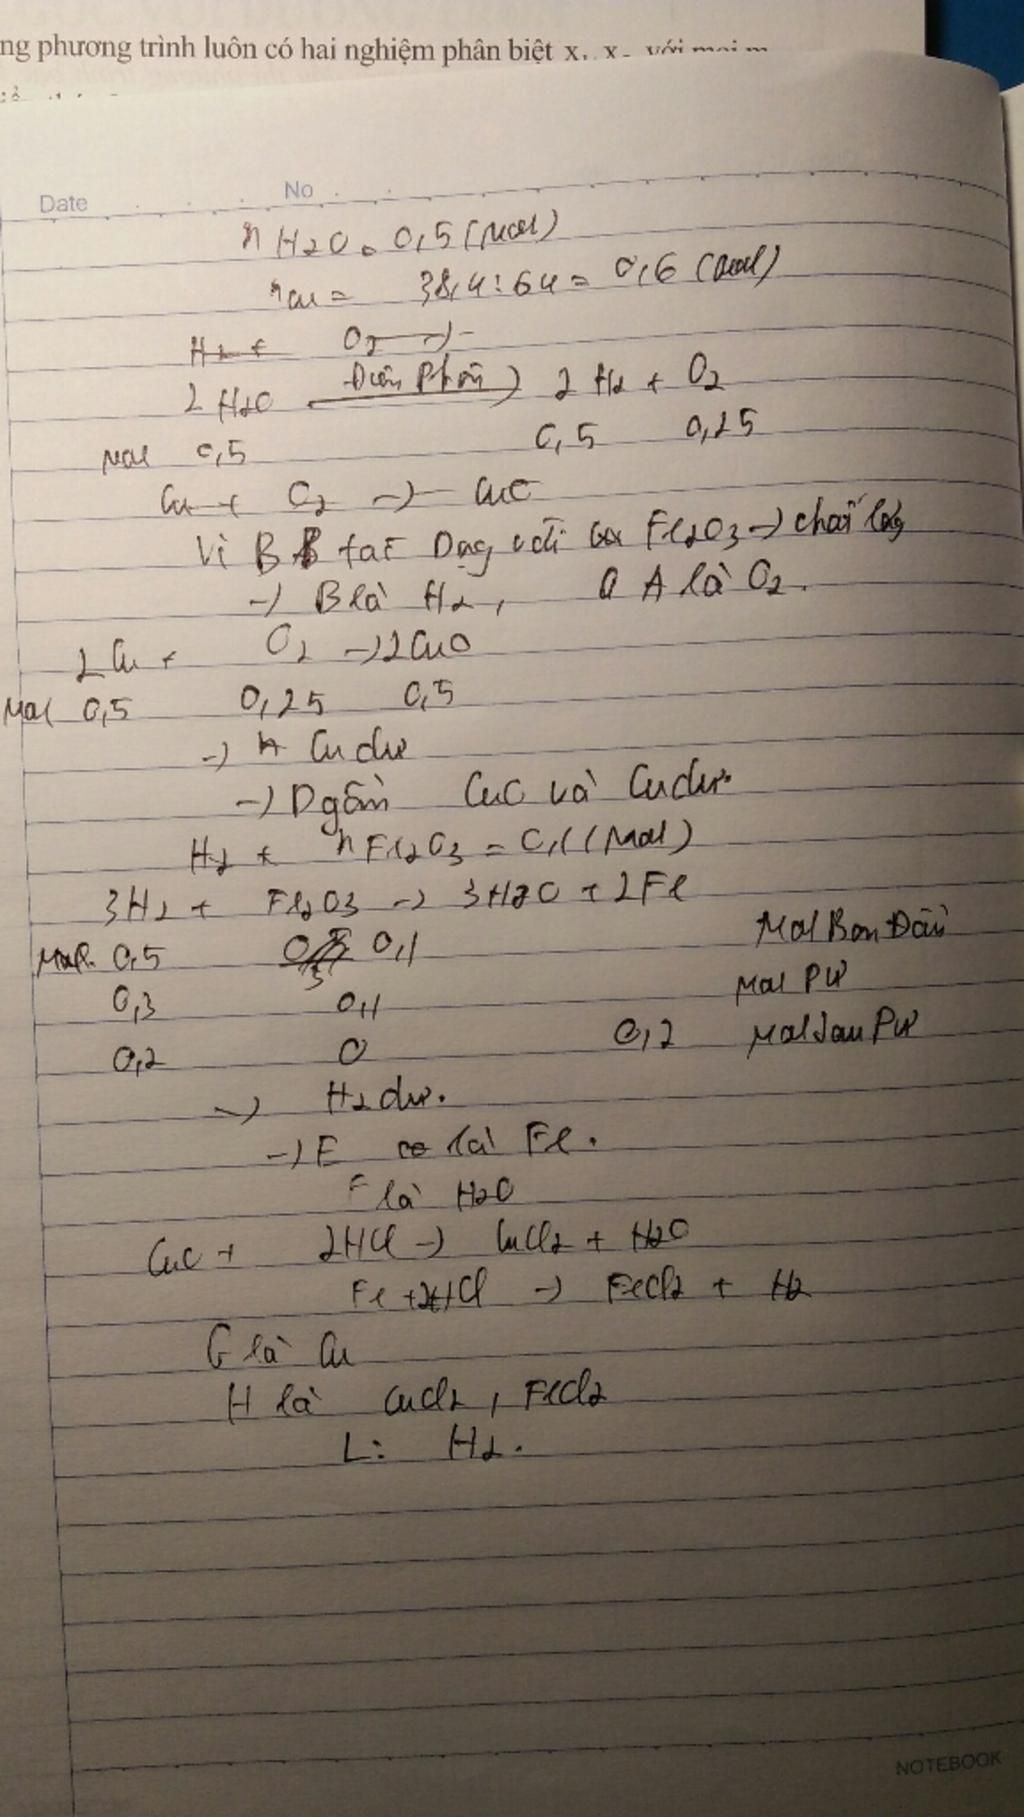 ng phương trình luôn có hai nghiệm phân biệt x, x với mọi m
Date No
nH2O = 0,5 (mol)
nCu = 38,4:64 = 0,6 (mol)
H2 + O2 →
2H2O Điện Phân → 2H2 + O2
Mol 0,5 0,5 0,25
Cu + O2 → CuO
Vì B tác Dụng với Fe2O3 → chất lỏng
→ B là H2, A là O2.
2Cu + O2 → 2CuO
Mol 0,5 0,25 0,5
→ n Cu dư
→ D gồm CuO và Cu dư.
H2 + nFe2O3 = 0,1 (Mol)
3H2 + Fe2O3 → 3H2O + 2Fe
Mol 0,5 0,1 Mol Ban Đầu
0,3 0,1 Mol PƯ
0,2 0 0,2 Mol Sau PƯ
→ H2 dư.
→ E là Fe.
F là H2O
CuO + 2HCl → CuCl2 + H2O
Fe + 2HCl → FeCl2 + H2
G là Cu
H là CuCl2, FeCl2
L: H2.
NOTEBOOK